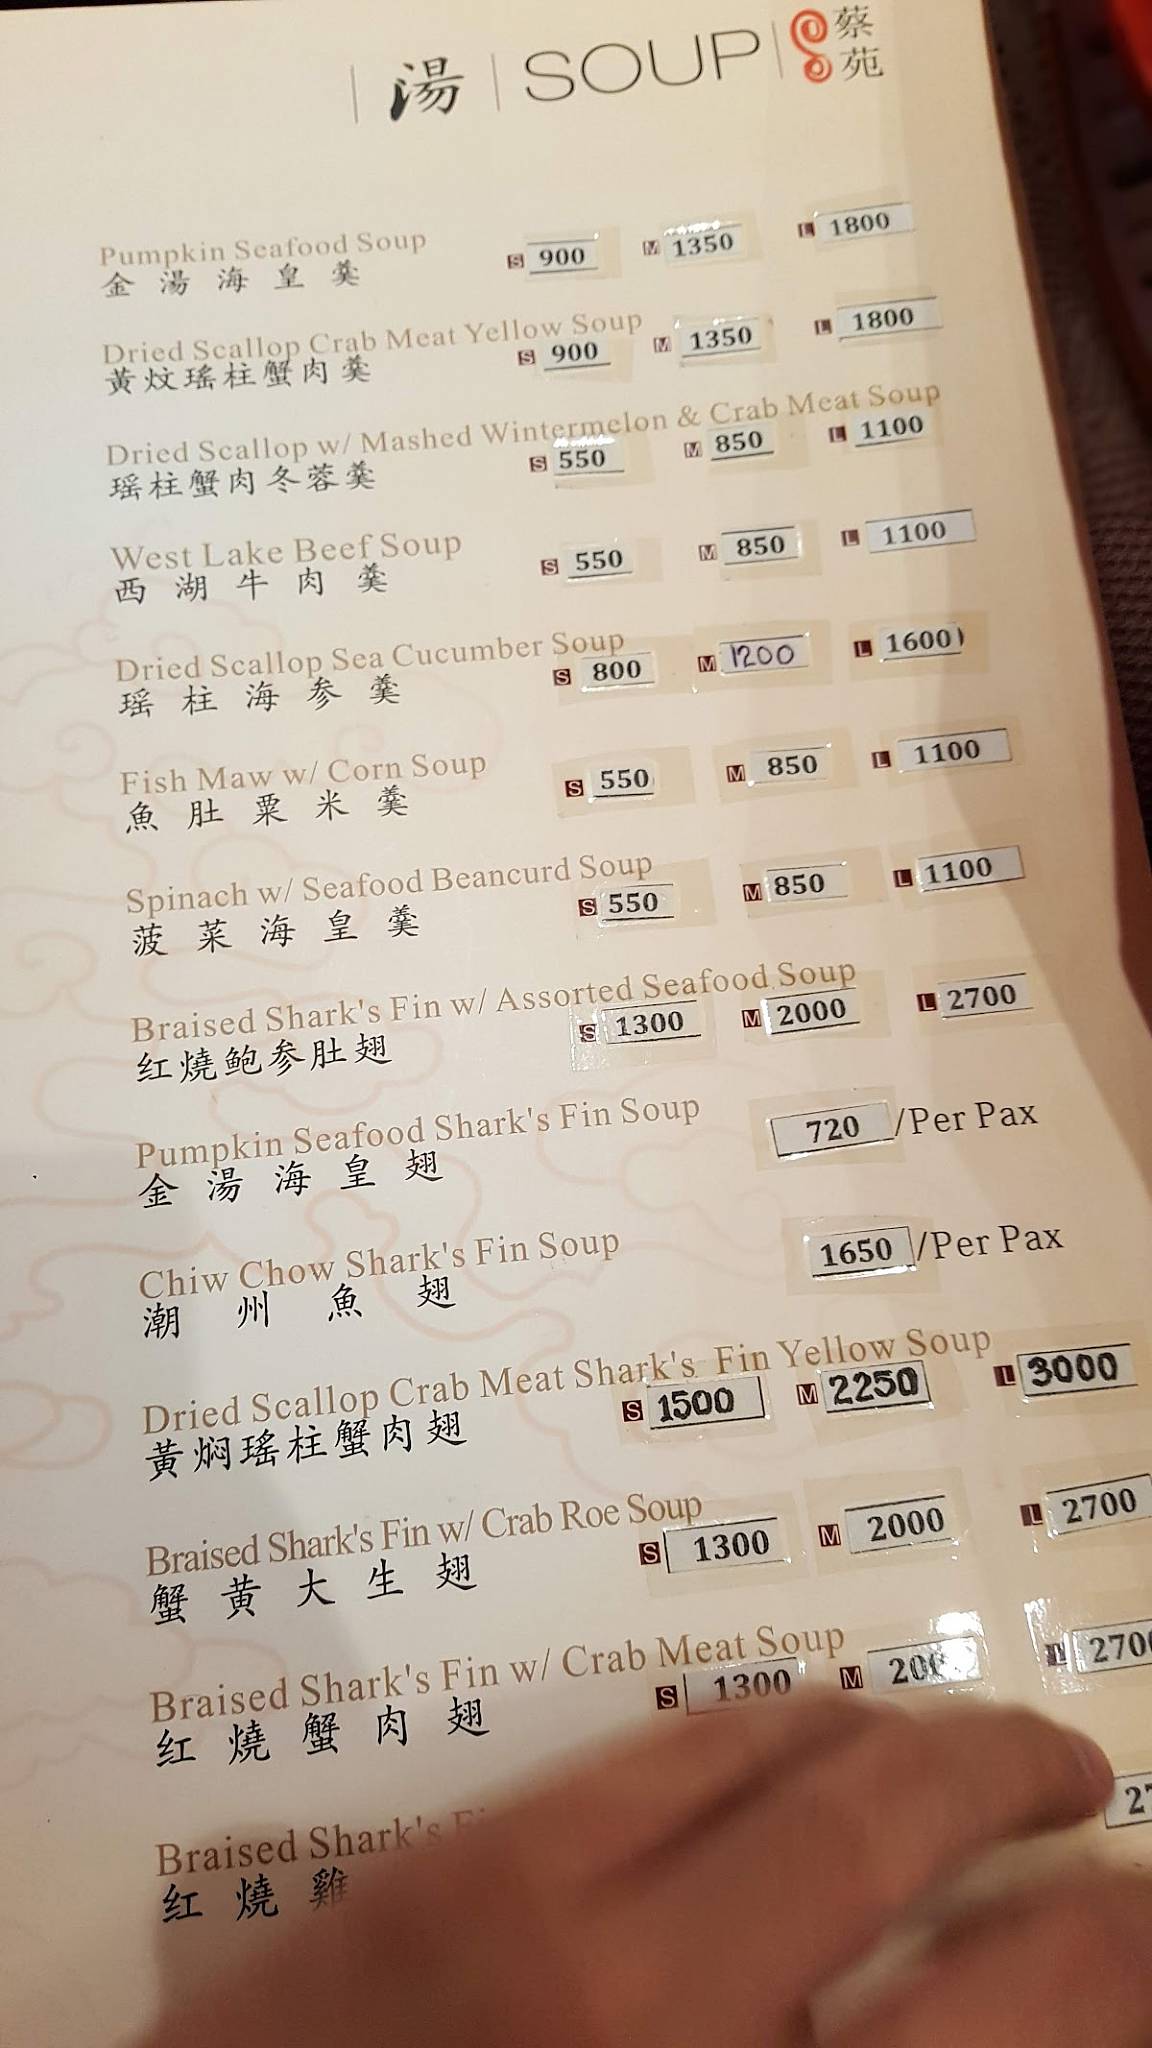 湯 | SOUP 蔡苑
Pumpkin Seafood Soup
金湯海皇羹 S 900 M 1350 L 1800
Dried Scallop Crab Meat Yellow Soup
黃炆瑤柱蟹肉羹 S 900 M 1350 L 1800
Dried Scallop w/ Mashed Wintermelon & Crab Meat Soup
瑤柱蟹肉冬蓉羹 S 550 M 850 L 1100
West Lake Beef Soup
西湖牛肉羹 S 550 M 850 L 1100
Dried Scallop Sea Cucumber Soup
瑤柱海参羹 S 800 M 1200 L 1600
Fish Maw w/ Corn Soup
魚肚粟米羹 S 550 M 850 L 1100
Spinach w/ Seafood Beancurd Soup
菠菜海皇羹 S 550 M 850 L 1100
Braised Shark's Fin w/ Assorted Seafood Soup
红燒鲍参肚翅 S 1300 M 2000 L 2700
Pumpkin Seafood Shark's Fin Soup 720 /Per Pax
金湯海皇翅
Chiw Chow Shark's Fin Soup 1650 /Per Pax
潮州魚翅
Dried Scallop Crab Meat Shark's Fin Yellow Soup
黃焖瑤柱蟹肉翅 S 1500 M 2250 L 3000
Braised Shark's Fin w/ Crab Roe Soup
蟹黄大生翅 S 1300 M 2000 L 2700
Braised Shark's Fin w/ Crab Meat Soup
红燒蟹肉翅 S 1300 M 200 2700
Braised Shark's
红燒雞 27